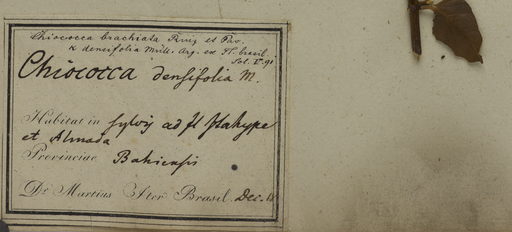 Chiococca brachiata Ruiz et Pav.
α densifolia Müll. Arg. ex Fl. brasil.
Chiococca densifolia M.
Habitat in sylvis ad fl Itahype
et Almada
Provinciae Bahiensis
Dr Martius Iter Brasil. Dec.